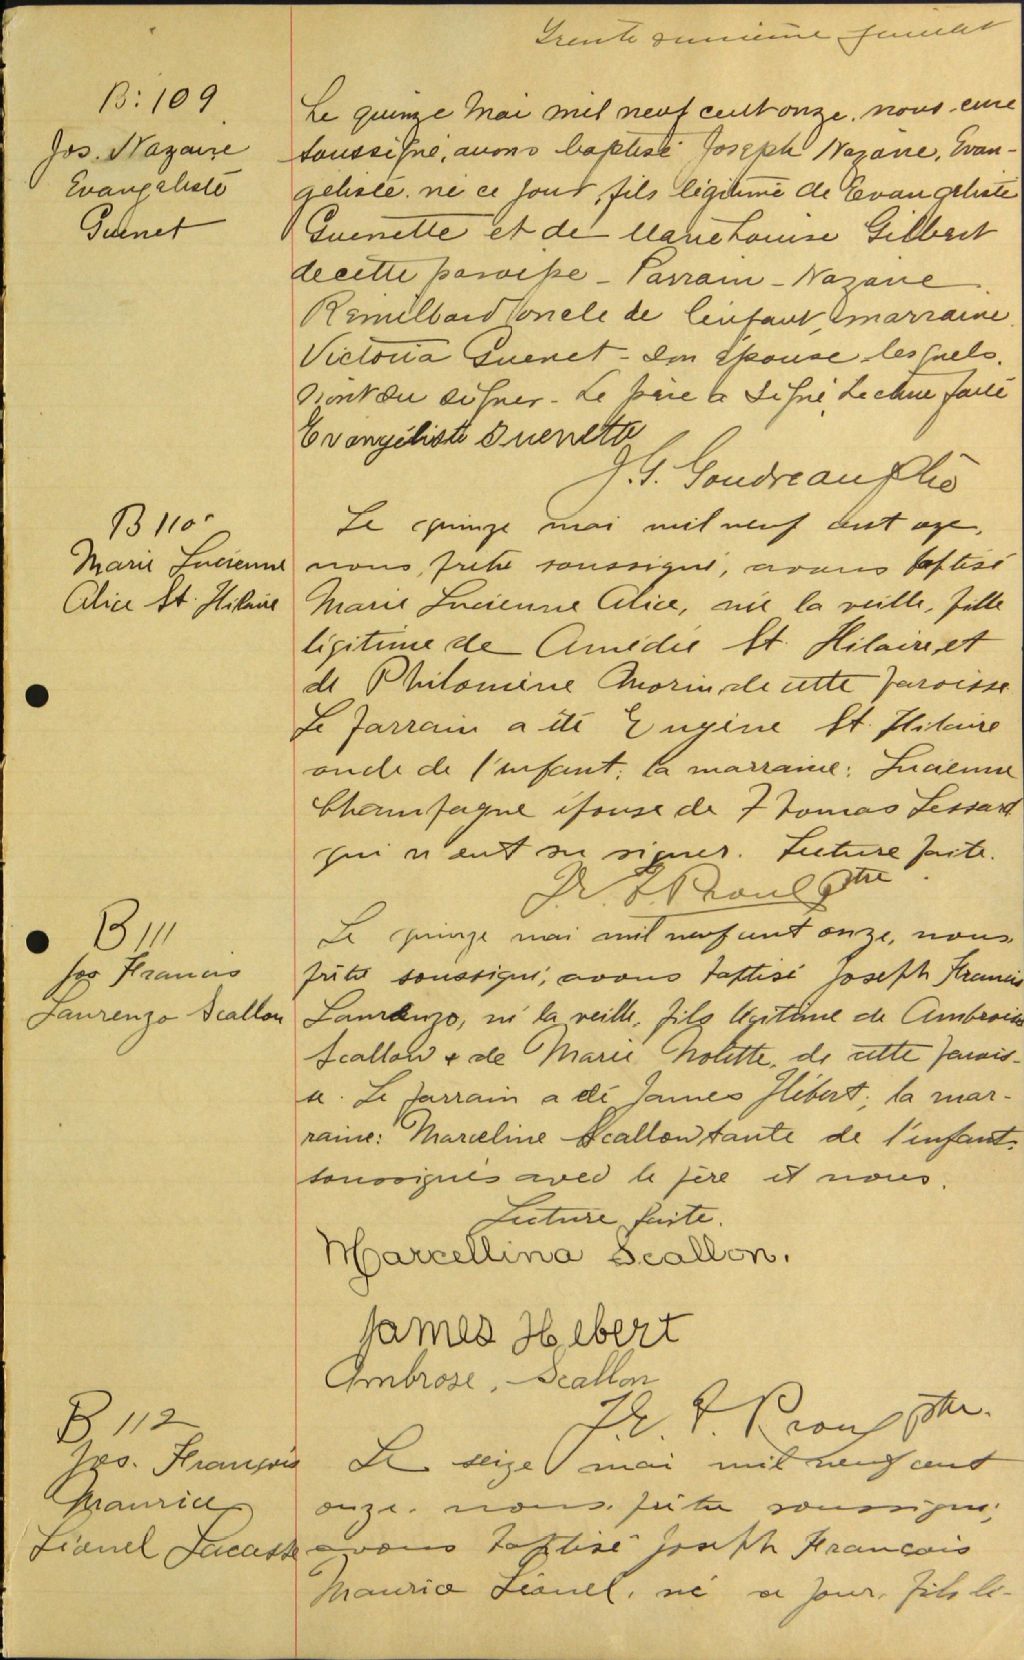 Trente deuxième feuillet
B: 109
Jos. Nazaire
Evangeliste
Guenet
Le quinze Mai mil neuf cent onze. nous curé
soussigné, avons baptisé Joseph Nazaire, Evan-
geliste. né ce jour, fils légitime de Evangeliste
Guenette et de Marie Louise Gilbert
de cette paroisse - Parrain - Nazaire
Remillard oncle de l'enfant, marraine
Victoria Guenet - son épouse lesquels.
n'ont su signer - Le père a signé. Lecture faite
Evangéliste Guenette
J. G. Goudreau Ptre
B 110
Marie Lucienne
Alice St. Hilaire
Le quinze mai mil neuf cent oze,
nous, prêtre soussigné, avons baptisé
Marie Lucienne Alice, née la veille, fille
légitime de Amédée St. Hilaire, et
de Philomène Morin, de cette paroisse
Le parrain a été Eugène St. Hilaire
oncle de l'enfant; la marraine: Lucienne
Champagne épouse de Thomas Lessard
qui n'ont su signer. Lecture faite.
J. E. F. Proulx Ptre
B 111
Jos Francis
Laurenzo Scallon
Le quinze mai mil neuf cent onze, nous
prêtre soussigné, avons baptisé Joseph Francis
Laurenzo, né la veille, fils légitime de Ambroise
Scallon & de Marie Nolette, de cette parois-
se. Le parrain a été James Hébert; la mar-
raine: Marceline Scallon tante de l'enfant.
soussignés avec le père et nous.
Lecture faite.
Marcellina Scallon.
James Hebert
Ambrose, Scallon
J. E. F. Proulx Ptre.
B 112
Jos. François
Maurice
Lionel Lacasse
Le seize mai mil neuf cent
onze, nous, prêtre soussigné,
avons baptisé Joseph François
Maurice Léonel, né ce jour, fils lé-